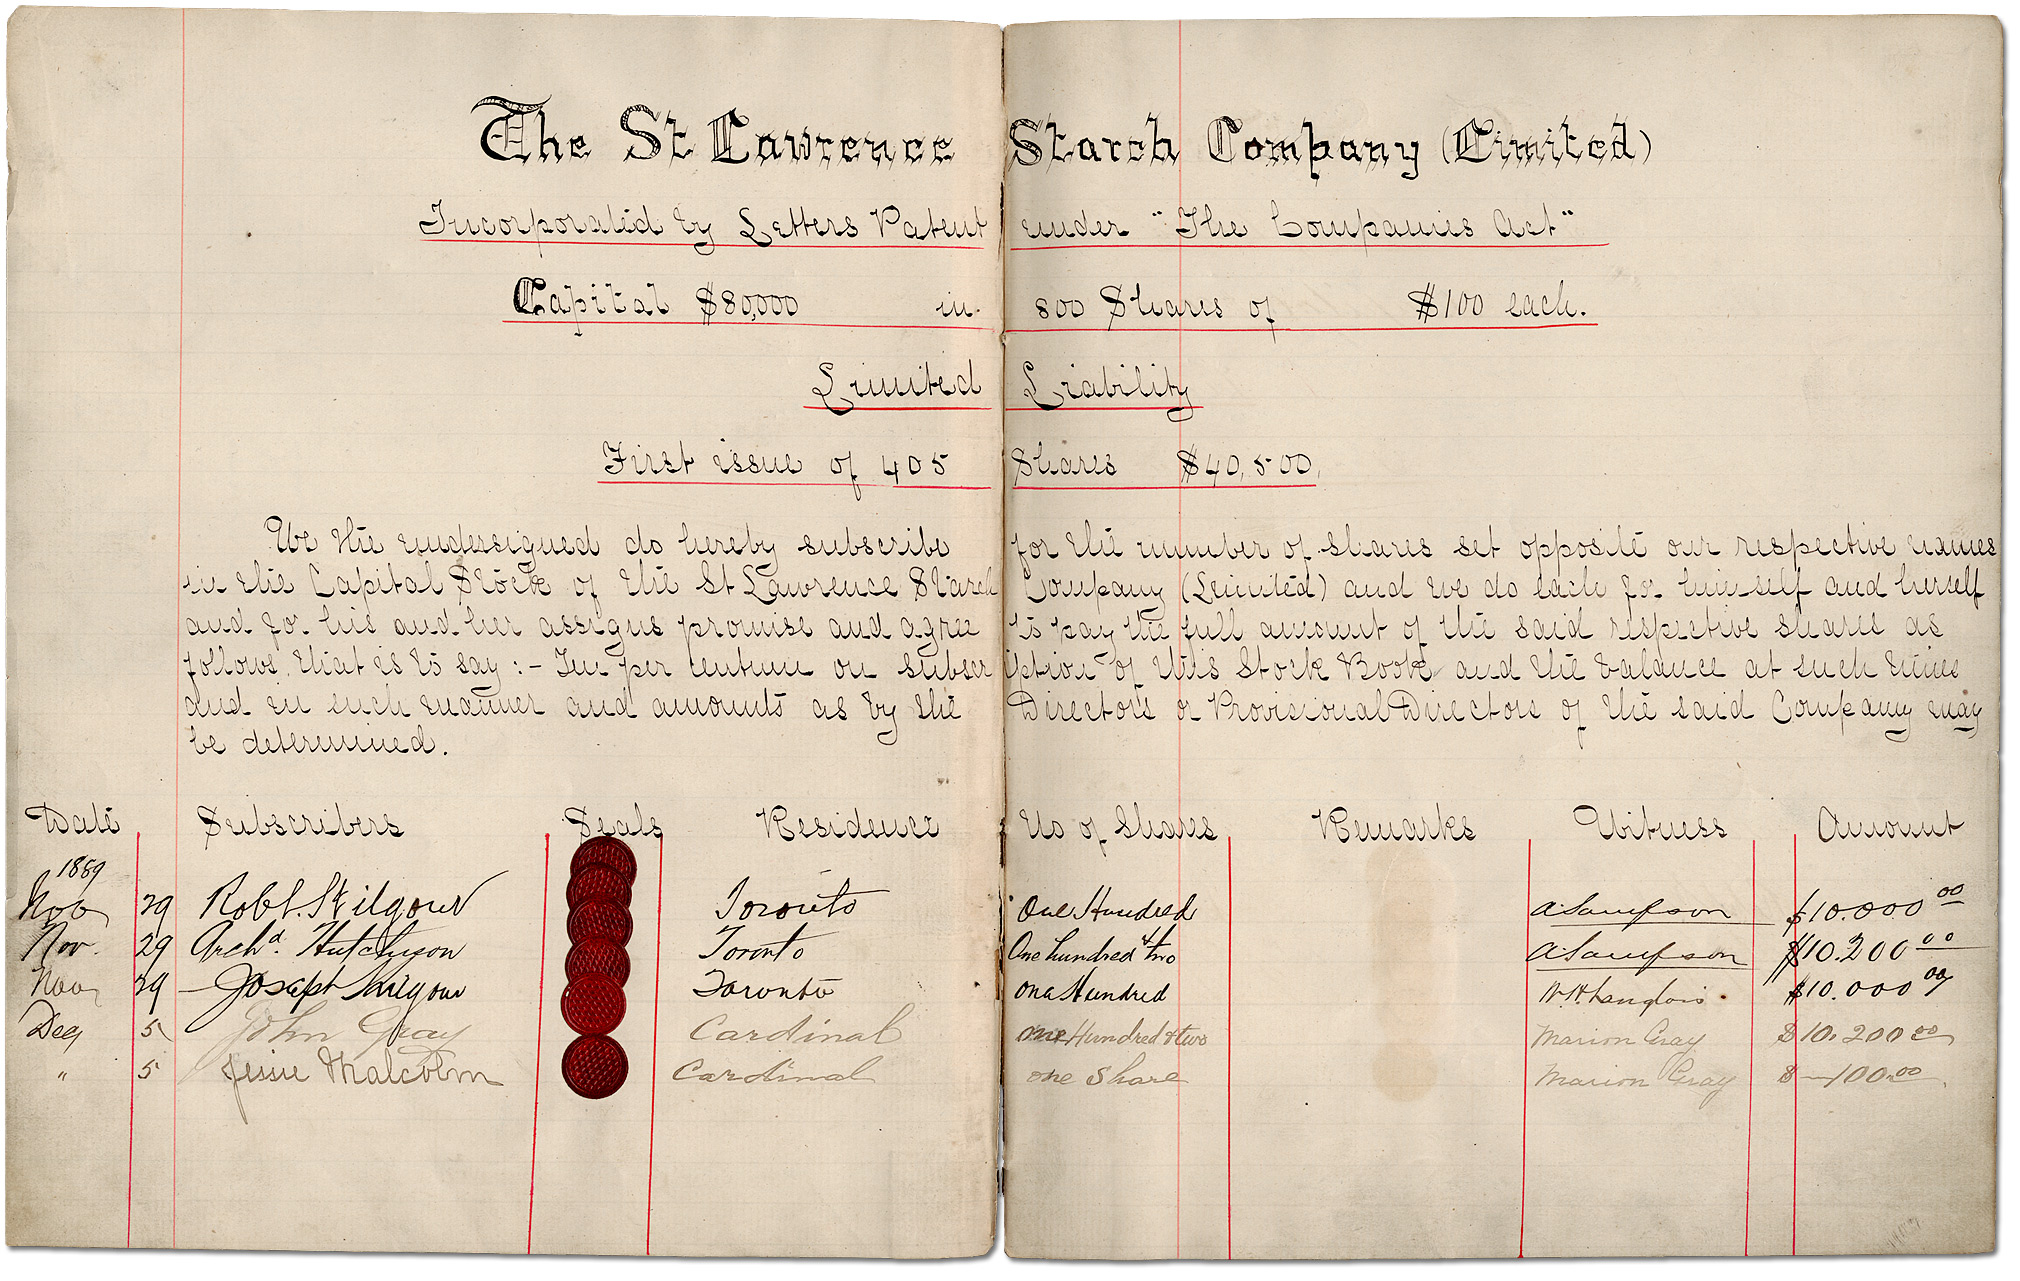 The St Lawrence Starch Company (Limited)
Incorporated by Letters Patent under "The Companies Act"
Capital $80,000 in 800 Shares of $100 each.
Limited Liability
First issue of 405 Shares $40,500.
We the undersigned do hereby subscribe for the number of shares set opposite our respective names
in the Capital Stock of the St Lawrence Starch Company (Limited) and we do each for himself and herself
and for his and her assigns promise and agree to pay the full amount of the said respective shares as
follows, that is to say :- Ten per centum on subscription of this Stock Book and the balance at such times
and in such manner and amounts as by the Directors or Provisional Directors of the said Company may
be determined.
Date Subscribers Seals Residence No of Shares Remarks Witness Amount
1889
Nov 29 Robt. Kilgour Toronto One Hundred A Sampson $10.000 00
Nov. 29 Archd. Hutchison Toronto One hundred & two A Sampson $10.200 00
Nov 29 Joseph Kilgour Toronto One Hundred W. H. Langlois $10.000 00
Dec 5 John Gray Cardinal one Hundred & two Marion Gray $10.200 00
" 5 Jessie Malcolm Cardinal one Share Marion Gray $—100.00